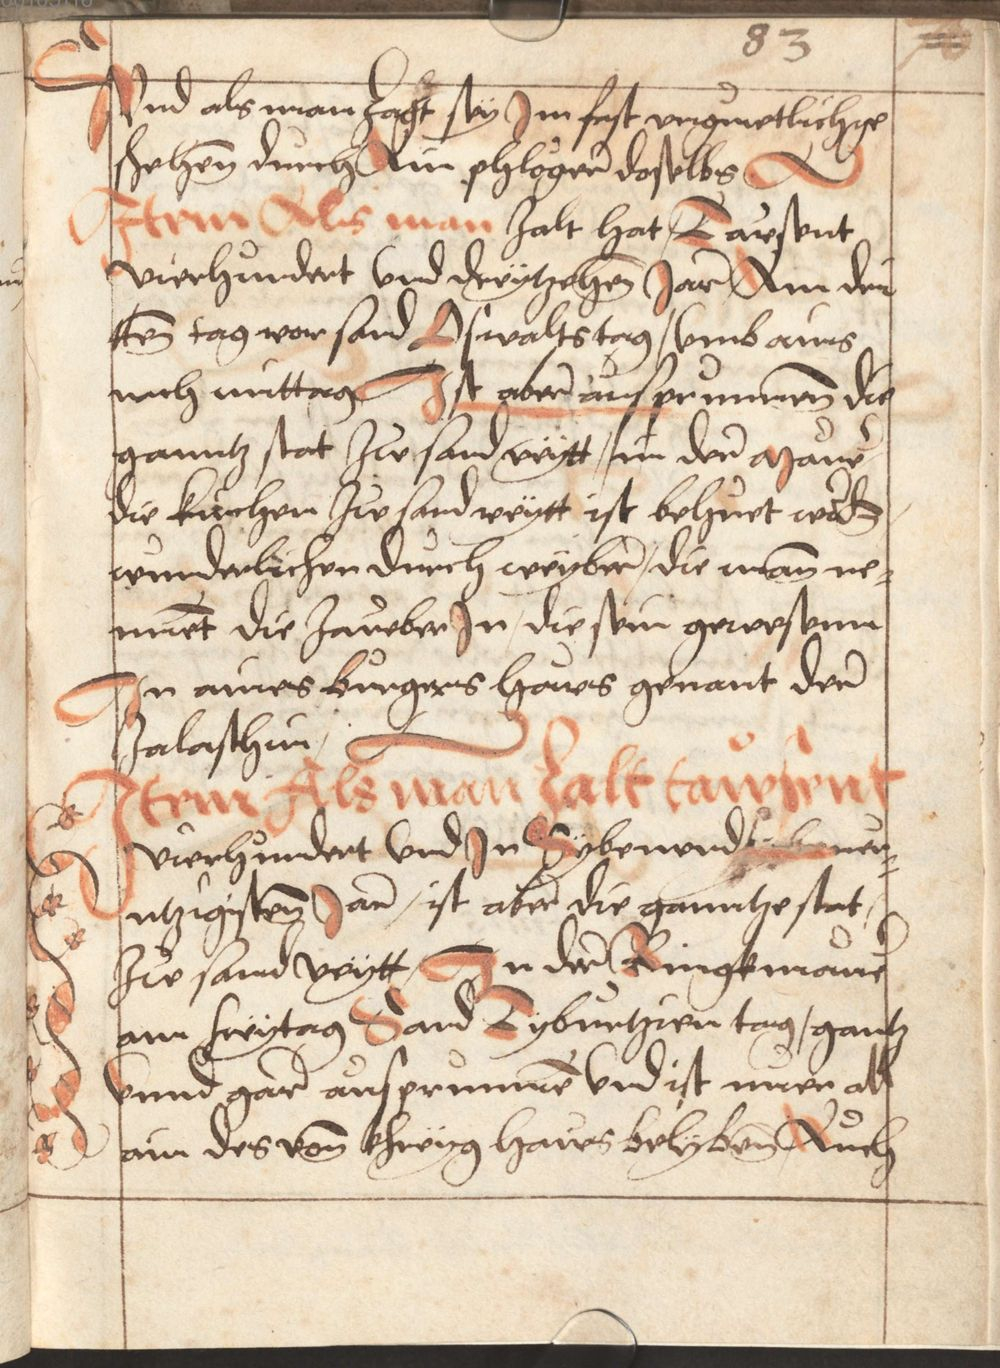 83
Vnd als man sagt sey Im fast vnguetlich ge
schehen durch Ain phleger doselbs
Item Als man zalt hat Tawsent
vierhundert vnd dreytzehen Jar Am dri
tten tag vor sand Oswalts tag / vmb ains
nach mittag Ist aber aus prunnen die
ganntz stat Zw sand veytt / in der Mauer
die kirchen Zw sand veytt ist behuet word
wunderlichen durch weyber / die man ne-
nnet die Zauberin / die sein gewesenn
In aines burgers haws genant der
Zalaschin /
Item Als man Zalt tawsent
vierhundert vnd In Sybenvnd neu-
ntzigisten Jar / ist aber die ganntze stat /
Zw sannd Veytt / In der Ringkmauer
am freytag Sand Tyburtzien tag / gantz
vnnd gar aus prunnen vnd ist nuer al
ain des von haws belyben Auch